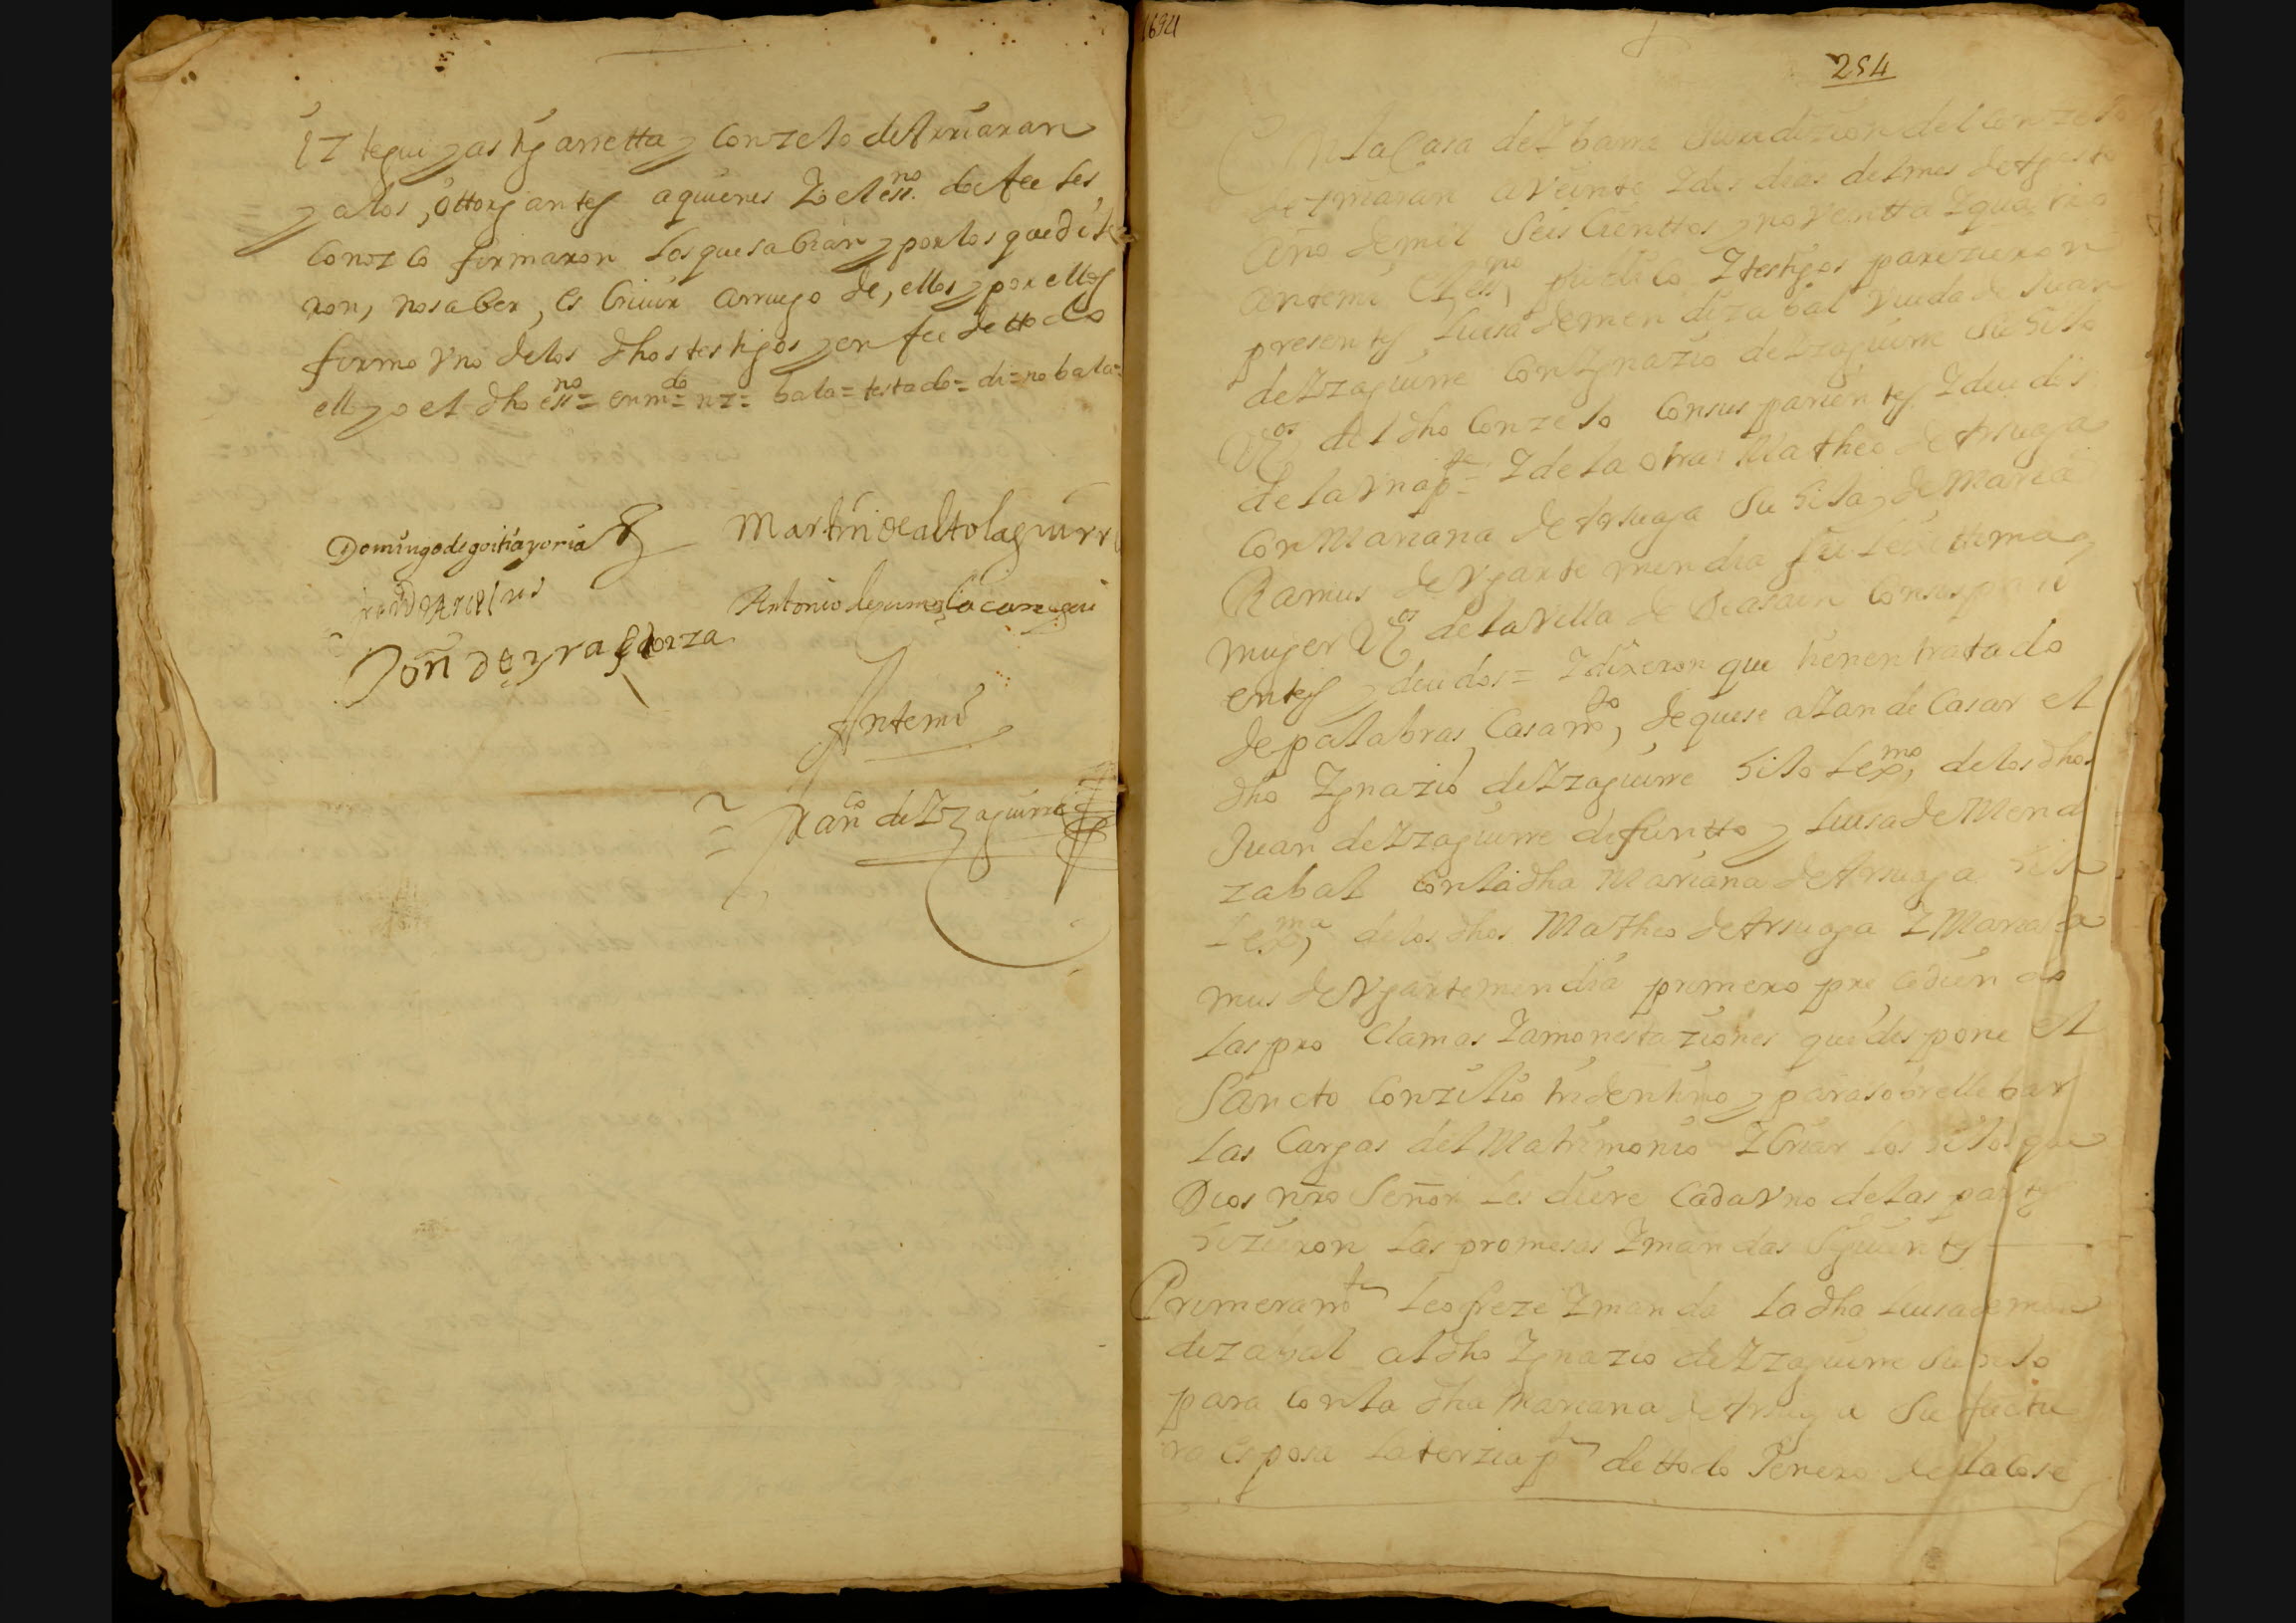 Yztegui y astigarretta y Conzejo de Arriaran
y a los, ottorgantes a quienes Yo el essno. doi fee les,
Conozco firmaron los que sabian y por los que dije
ron, no saber, escriuir a rruego de, ellos y por ellos
firmo vno de los dhos testigos y en fee de ttodo
ello yo el dho essno = enmdo = nz = bala = testado = di = no bala =
Domingo de goitia y oria
Martin de altolaguirre
Antonio de
Joan de
Antemi
Franco de Yzaguirre
1694
254
En la Casa de Ybarre Juridizion del Conzejo
de Arriaran a veinte Y dos dias del mes de Agosto
año de mil Seis Cienttos y noventta Y quatro
ante mi El essno, publico Y testigos parezieron
presentes Luisa de mendizabal viuda de Juan
de Yzaguirre Con Ygnazio de Yzaguirre su hijo
Vezos del dho Conzejo Con sus parientes Y deudos
de la vna pte = Y de la otra Matheo de Arsuaga
Con Mariana de Arsuaga Su hija y de Maria
Ramus de Vgartemendia su lexittima
muger Vezos de la Villa de Beasain Con sus pari
entes y deudos = Y dixeron que tienen tratado
de palabras Casamto, de que se aian de Casar el
dho Ygnazio de Yzaguirre hijo lexmo, de los dhos
Juan de Yzaguirre difuntto y Luisa de Mendi
zabal Con la dha Mariana de Arsuaga hija
Lexma, de los dhos Matheo de Arsuaga Y Maria Ra
mus de Vgartemendia primero prezediendo
las proclamas Y amonestaziones que dispone el
Sancto Conzilio tridentino y para sobrellebar
las Cargas del Matrimonio Y Criar los hijos que
Dios nro Señor les diere Cada vno de las partes
hizieron las promesas Y mandas Siguientes
Primeramte le ofreze Y manda la dha Luisa de men
dizabal al dho Ygnazio de Yzaguirre su hijo
para con la dha Mariana de Arsuaga Su futu
ra esposa la terzia pte de ttodo Jenero de la Cose